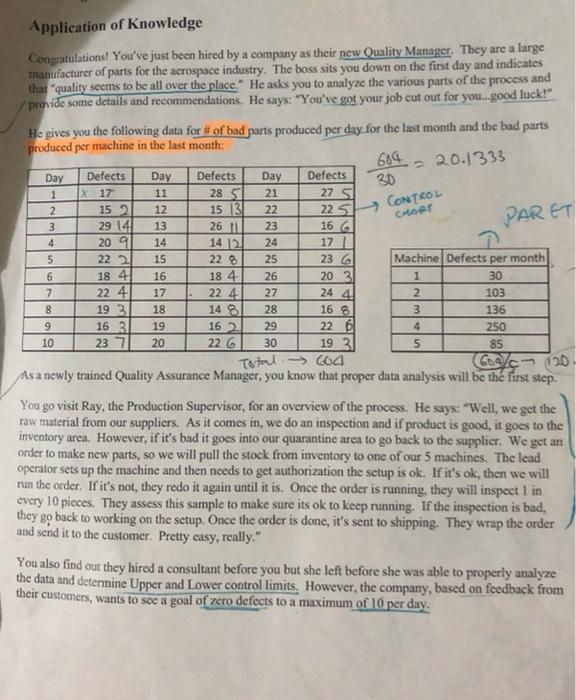 Application of Knowledge
Congratulations! You've just been hired by a company as their new Quality Manager. They are a large
manufacturer of parts for the aerospace industry. The boss sits you down on the first day and indicates
that "quality seems to be all over the place." He asks you to analyze the various parts of the process and
provide some details and recommendations. He says: "You've got your job cut out for you...good luck!"
He gives you the following data for # of bad parts produced per day for the last month and the bad parts
produced per machine in the last month:
604/30 = 20.1333
Day Defects Day Defects Day Defects
1 x 17 11 28 5 21 27 5
2 15 2 12 15 13 22 22 5
3 29 14 13 26 11 23 16 6
4 20 9 14 14 12 24 17 1
5 22 2 15 22 8 25 23 6
6 18 4 16 18 4 26 20 3
7 22 4 17 22 4 27 24 4
8 19 3 18 14 8 28 16 8
9 16 3 19 16 2 29 22 6
10 23 7 20 22 6 30 19 3
→ CONTROL
CHART
PARET
Machine Defects per month
1 30
2 103
3 136
4 250
5 85
Total → 604
604/5 → 120.
As a newly trained Quality Assurance Manager, you know that proper data analysis will be the first step.
You go visit Ray, the Production Supervisor, for an overview of the process. He says: "Well, we get the
raw material from our suppliers. As it comes in, we do an inspection and if product is good, it goes to the
inventory area. However, if it's bad it goes into our quarantine area to go back to the supplier. We get an
order to make new parts, so we will pull the stock from inventory to one of our 5 machines. The lead
operator sets up the machine and then needs to get authorization the setup is ok. If it's ok, then we will
run the order. If it's not, they redo it again until it is. Once the order is running, they will inspect 1 in
every 10 pieces. They assess this sample to make sure its ok to keep running. If the inspection is bad,
they go back to working on the setup. Once the order is done, it's sent to shipping. They wrap the order
and send it to the customer. Pretty easy, really."
You also find out they hired a consultant before you but she left before she was able to properly analyze
the data and determine Upper and Lower control limits. However, the company, based on feedback from
their customers, wants to see a goal of zero defects to a maximum of 10 per day.